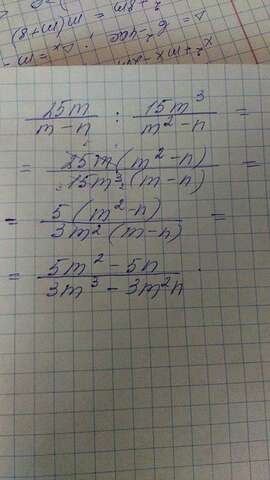 25m/(m-n) : 15m³/(m²-n) =
= 25m(m²-n)/15m³(m-n) =
= 5(m²-n)/3m²(m-n) =
= (5m²-5n)/(3m³-3m²n).